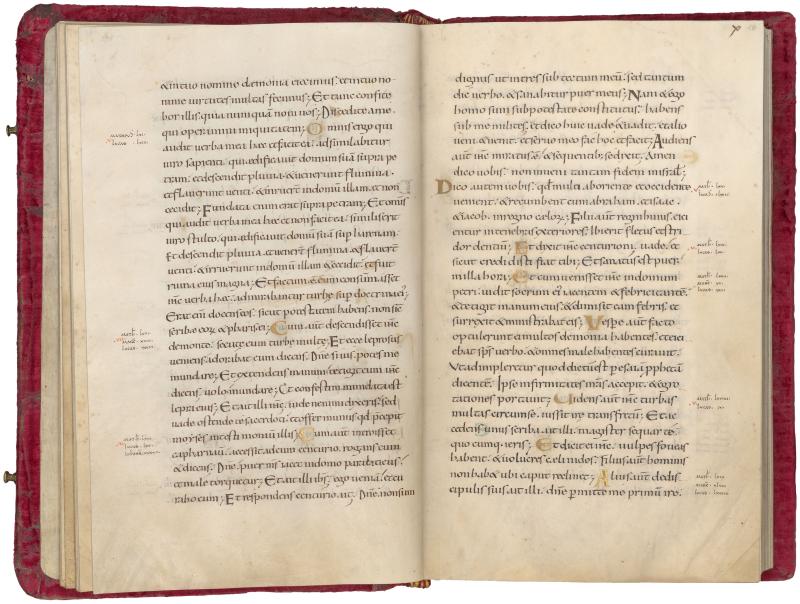 & intuo nomine demonia eiecimus. et intuo no-
mine virtutes multas fecimus; Et tunc confite
bor illis. quia numqua noui uos; Discedite ame.
qui operamini iniquitatem; Omnis ergo qui
audit verba mea haec etfacit ea. adsimilabitur
uiro sapienti. qui aedificauit domum suam supra pe
tram. etdescendit pluuia. & uenerunt flumina.
etflauerunt uenti. & inruer in domum illam. et non
cecidit; Fundata enim erat supra petram; Et omis
qui audit verba mea haec et non facit ea. similis erit
uiro stulto. qui aedificauit domu sua sup harenam.
Et descendit pluuia. et uener flumina. & flauer
uenti. & irruerunt indomu illam. & cecidit. etfuit
ruina eius magna; Et factum e cum consumasset
ihc verba haec. admirabantur turbe sup doctrina ei;
Erat eni docens eos. sicut potestatem habens. non sic
scribae eoru & pharisei; Cum aut descendisset ihc
demonte. secute sunt eum turbe multe; Et ecce leprosus
ueniens. adorabat eum dicens. Dne si uis. potes me
mundare; Et extendens manum. tetigit eum ihc
dicens; uolo. mundare; Et confestim mundata est
lepra eius; Et ait illi ihc; uide nemini dixeris. sed
uade ostende te sacerdoti. et offer munus qd precepit
moyses intestimonium illis; Cum aut introisset
capharnau. accessit adeum centurio. rogans eum
& dicens; Dne. puer ms iacet indomo paraliticus.
et male torquetur; Et ait illi ihs; ego ueniam. etcu
rabo eum; Et respondens centurio. ait; Dne. non sum
dignus ut intres sub tectum meu. sed tantum
dic verbo. & sanabitur puer meus; Nam & ego
homo sum sub potestate constitutus. habens
sub me milites. et dico huic uade. & uadit. et alio
ueni. & uenit. et seruo meo fac hoc. et facit; Audiens
aut ihc miratus e. & sequentib; se dixit; Amen
dico uobis. non inueni tantam fidem in israhl;
Dico autem uobis. qd multi ab oriente & occidente
uenient. & recumbent cum abraham. et isaac
& iacob. in regno caeloru; Filii aut regni huius. eici
entur in tenebras exteriores. ibi erit fletus et stri
dor dentiu; Et dixit ihc centurioni. uade. et
sicut credidisti fiat tibi; Et sanatus est puer
in illa hora; Et cum uenisset ihc in domum
petri. uidit socrum ei iacentem & febricitante.
& tetigit manum eius. & dimisit eam febris. et
surrexit & ministrabat eis; Vespe aut facto
optulerunt ei multos demonia habentes. et eici
ebat sps verbo. & omnes male habentes curauit.
Vt adimpleretur quod dictu est p esaia ppheta
dicente. Ipse infirmitates nras accepit. & egro
tationes portauit; Uidens aut ihc turbas
multas circum se. iussit ire transfretu; Et ac
cedens unus scriba. ait illi. magister sequar te.
quocumq; ieris; Et dicit ei ihc. uulpes foueas
habent. & uolucres caeli nidos. filius aut hominis
non habet ubi caput reclinet; Alius aut dedis-
cipulis eius. ait illi. dne pmitte me primu ire.